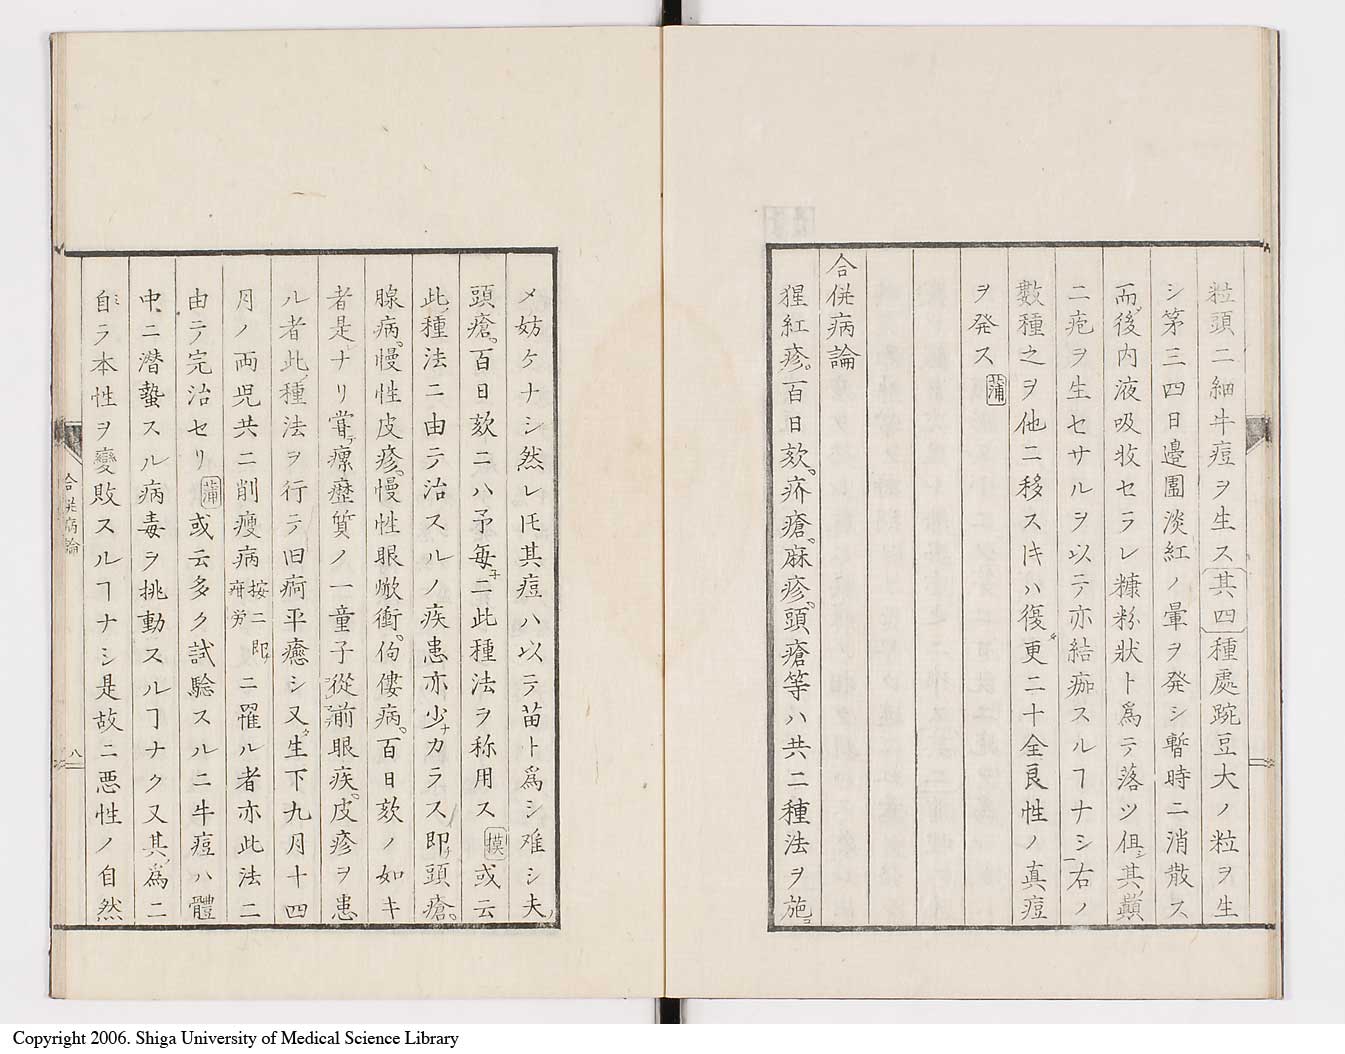 粒頭ニ細牛痘ヲ生ス其四種處踠豆大ノ粒ヲ生
シ第三四日邉圍淡紅ノ暈ヲ発シ暫時ニ消散ス
而後内液吸收セラレ糠粉状ト為テ落ツ俱シ其巓
ニ疤ヲ生セサルヲ以テ亦結痂スルヿナシ右ノ
數種之ヲ他ニ移スㇳキハ復更ニ十全良性ノ真痘
ヲ発ス 蒲
合併病論
猩紅疹。百日欬。疥瘡。麻疹。頭瘡等ハ共ニ種法ヲ施コ
メ妨ケナシ然レㄧモ其痘ハ以テ苗ト爲シ难シ夫
頭瘡。百日欬ニハ予毎ニ此種法ヲ称用ス 摸 或云
此種法ニ由テ治スルノ疾患亦少ナカラス即チ頭瘡。
腺病。慢性皮疹。慢性眼焮衝。佝僂病。百日欬ノ如キ
者是ナリ嘗テ瘰癧質ノ一童子從前眼疾。皮疹ヲ患
ル者此種法ヲ行テ旧痾平癒シ又生下九月十四
月ノ両児共ニ削瘦病 按ニ即疳労 ニ罹ル者亦此法ニ
由テ完治セリ 蒲 或云多ク試驗スルニ牛痘ハ體
中ニ潜蟄スル病毒ヲ挑動スルヿナク又其為ニ
自ミラ本性ヲ變敗スルヿナシ是故ニ悪性ノ自然
合併病論
八
Copyright 2006. Shiga University of Medical Science Library